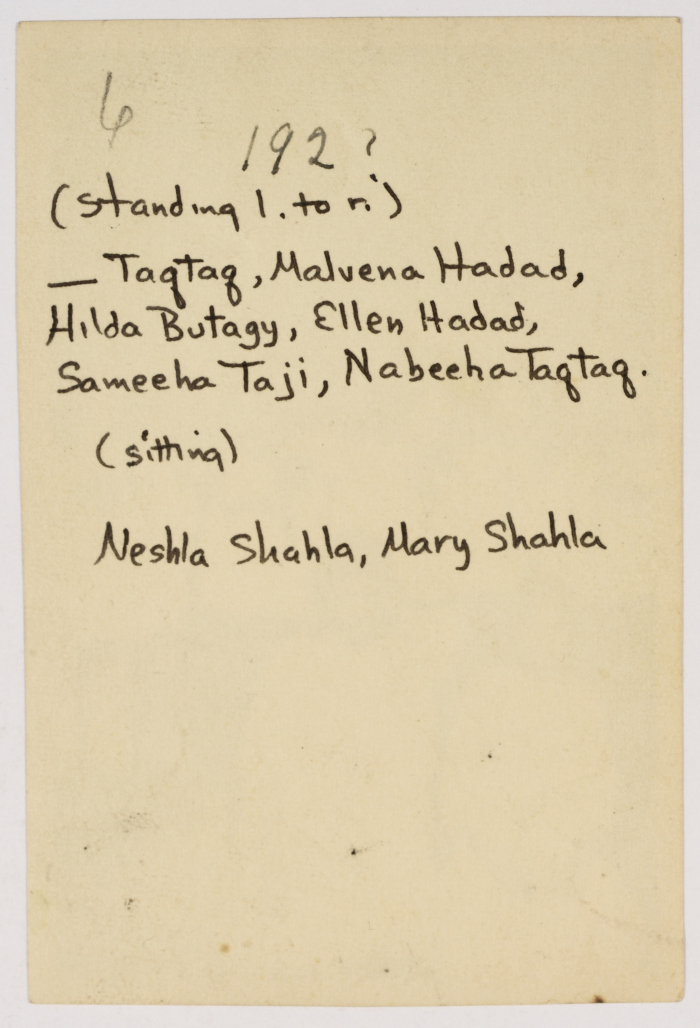 6
192?
(standing l. to r.)
— Taqtaq, Malvena Hadad,
Hilda Butagy, Ellen Hadad,
Sameeha Taji, Nabeeha Taqtaq.
(sitting)
Neshla Shahla, Mary Shahla